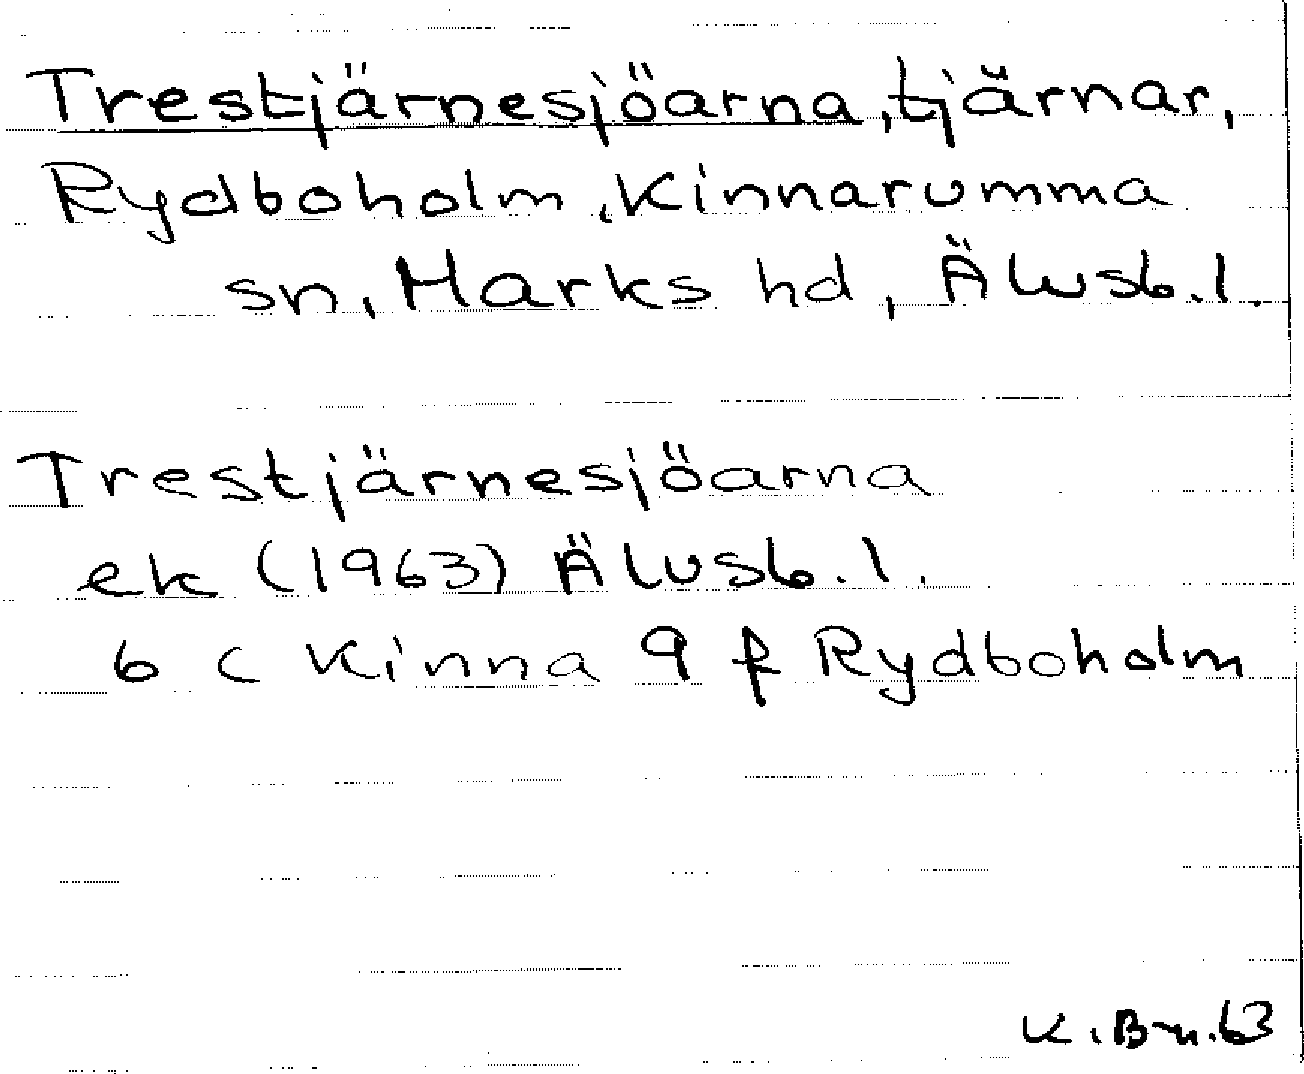 Trestjärnesjöarna, tjärnar,
Rydboholm, Kinnarumma
sn, Marks hd, Älvsb. l.
Trestjärnesjöarna
ek (1963) Älvsb. l.
6 c Kinna 9 f Rydboholm
K. B-n. 63